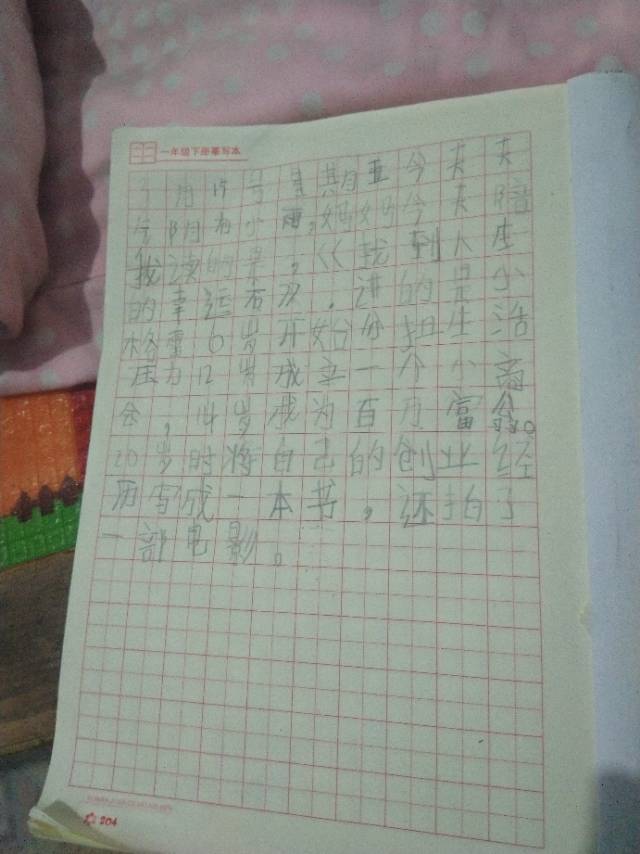 一年级下册摹写本
月17号星期五今天天
气阴有小雨,妈妈今天陪
我读的是,《找到人生
的幸运石》,讲的是小
格雷6岁开始分担生活
压力12岁成立一个小商
会,14岁成为百万富翁。
20岁时将自己的创业经
历写成一本书,还拍了
一部电影。
204